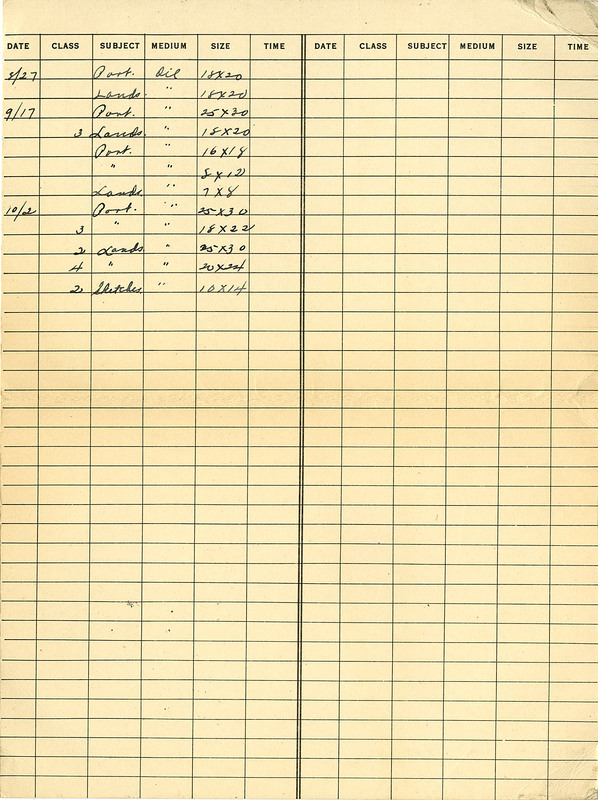 DATE CLASS SUBJECT MEDIUM SIZE TIME DATE CLASS SUBJECT MEDIUM SIZE TIME
8/27 Port. Oil 18X20
Lands. " 18X20
9/17 Port. " 25X30
3 Lands. " 18X20
Port. " 16X18
" " 8X12
Lands. " 7X8
10/2 Port. " 25X30
3 " " 18X22
2 Lands. " 25X30
4 " " 20X24
2 Sketches " 10X14